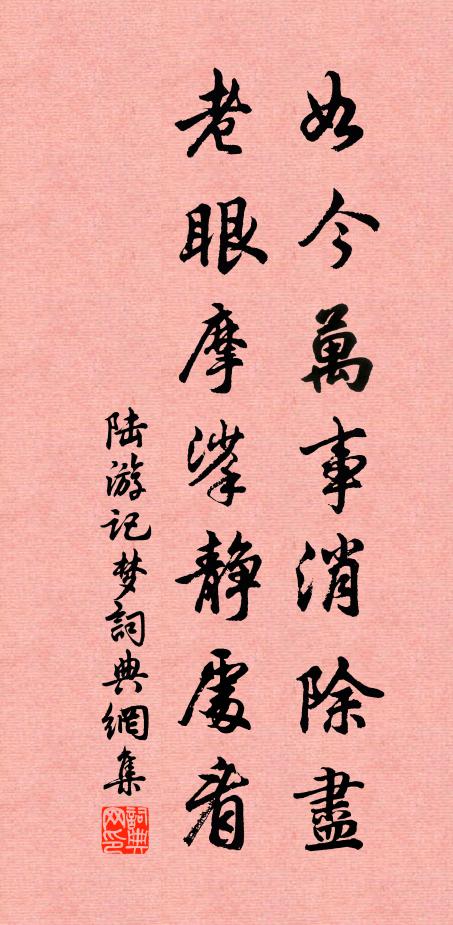 如今萬事消除盡
老眼摩挲静處看
陆游记梦詞典網集
詞典网印